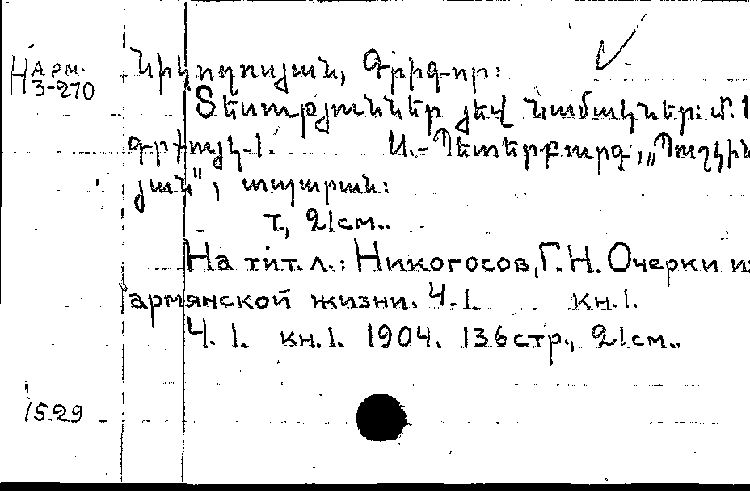 Н Арм. 3-270
Նիկողոսյան, Գրիգոր։
Տեսություններ յեվ նամակներ։ մ. 1
գրքույկ-1. Ս.-Պետերբուրգ, „Պուշկին
յան", տպարան։
т., 21см..
На тит.л.: Никогосов, Г.Н. Очерки из
армянской жизни. Ч.1. кн.1.
Ч. 1. кн.1. 1904. 136стр., 21см..
1529